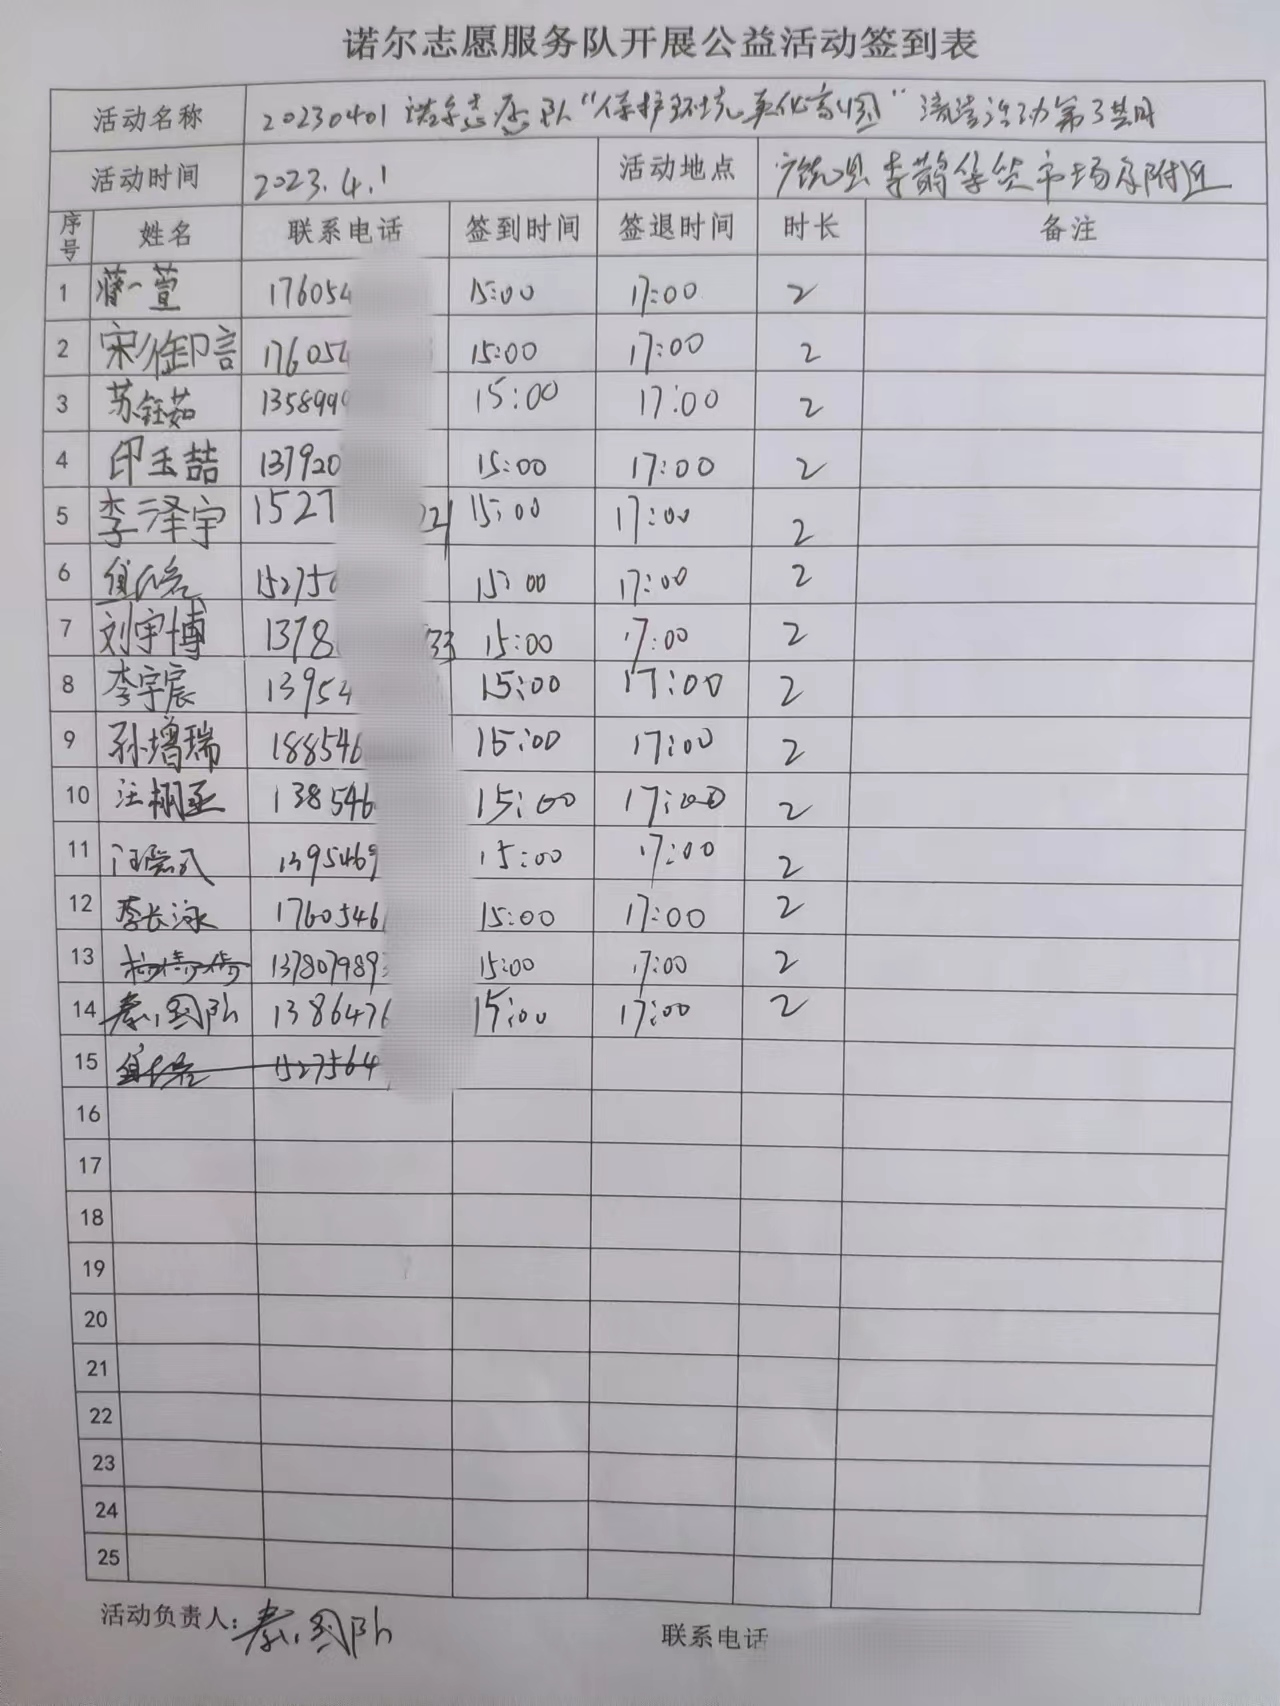 诺尔志愿服务队开展公益活动签到表
活动名称 20230401 诺尔志愿队“保护环境美化家园”清洁活动第3期
活动时间 2023.4.1 活动地点 广饶县李鹊集贸市场及附近
序号 姓名 联系电话 签到时间 签退时间 时长 备注
1 一萱 17605 15:00 17:00 2
2 宋御言 17605 15:00 17:00 2
3 苏钰茹 1358999 15:00 17:00 2
4 印玉喆 137920 15:00 17:00 2
5 李泽宇 1527 21 15:00 17:00 2
6 15275 15:00 17:00 2
7 刘宇博 1378 33 15:00 17:00 2
8 李宇宸 13954 15:00 17:00 2
9 孙增瑞 188546 15:00 17:00 2
10 汪栩丞 138546 15:00 17:00 2
11 汪 1395469 15:00 17:00 2
12 李长泳 1760546 15:00 17:00 2
13 137807989 15:00 17:00 2
14 秦国队 1386476 15:00 17:00 2
15 1527564
16
17
18
19
20
21
22
23
24
25
活动负责人：秦国队 联系电话